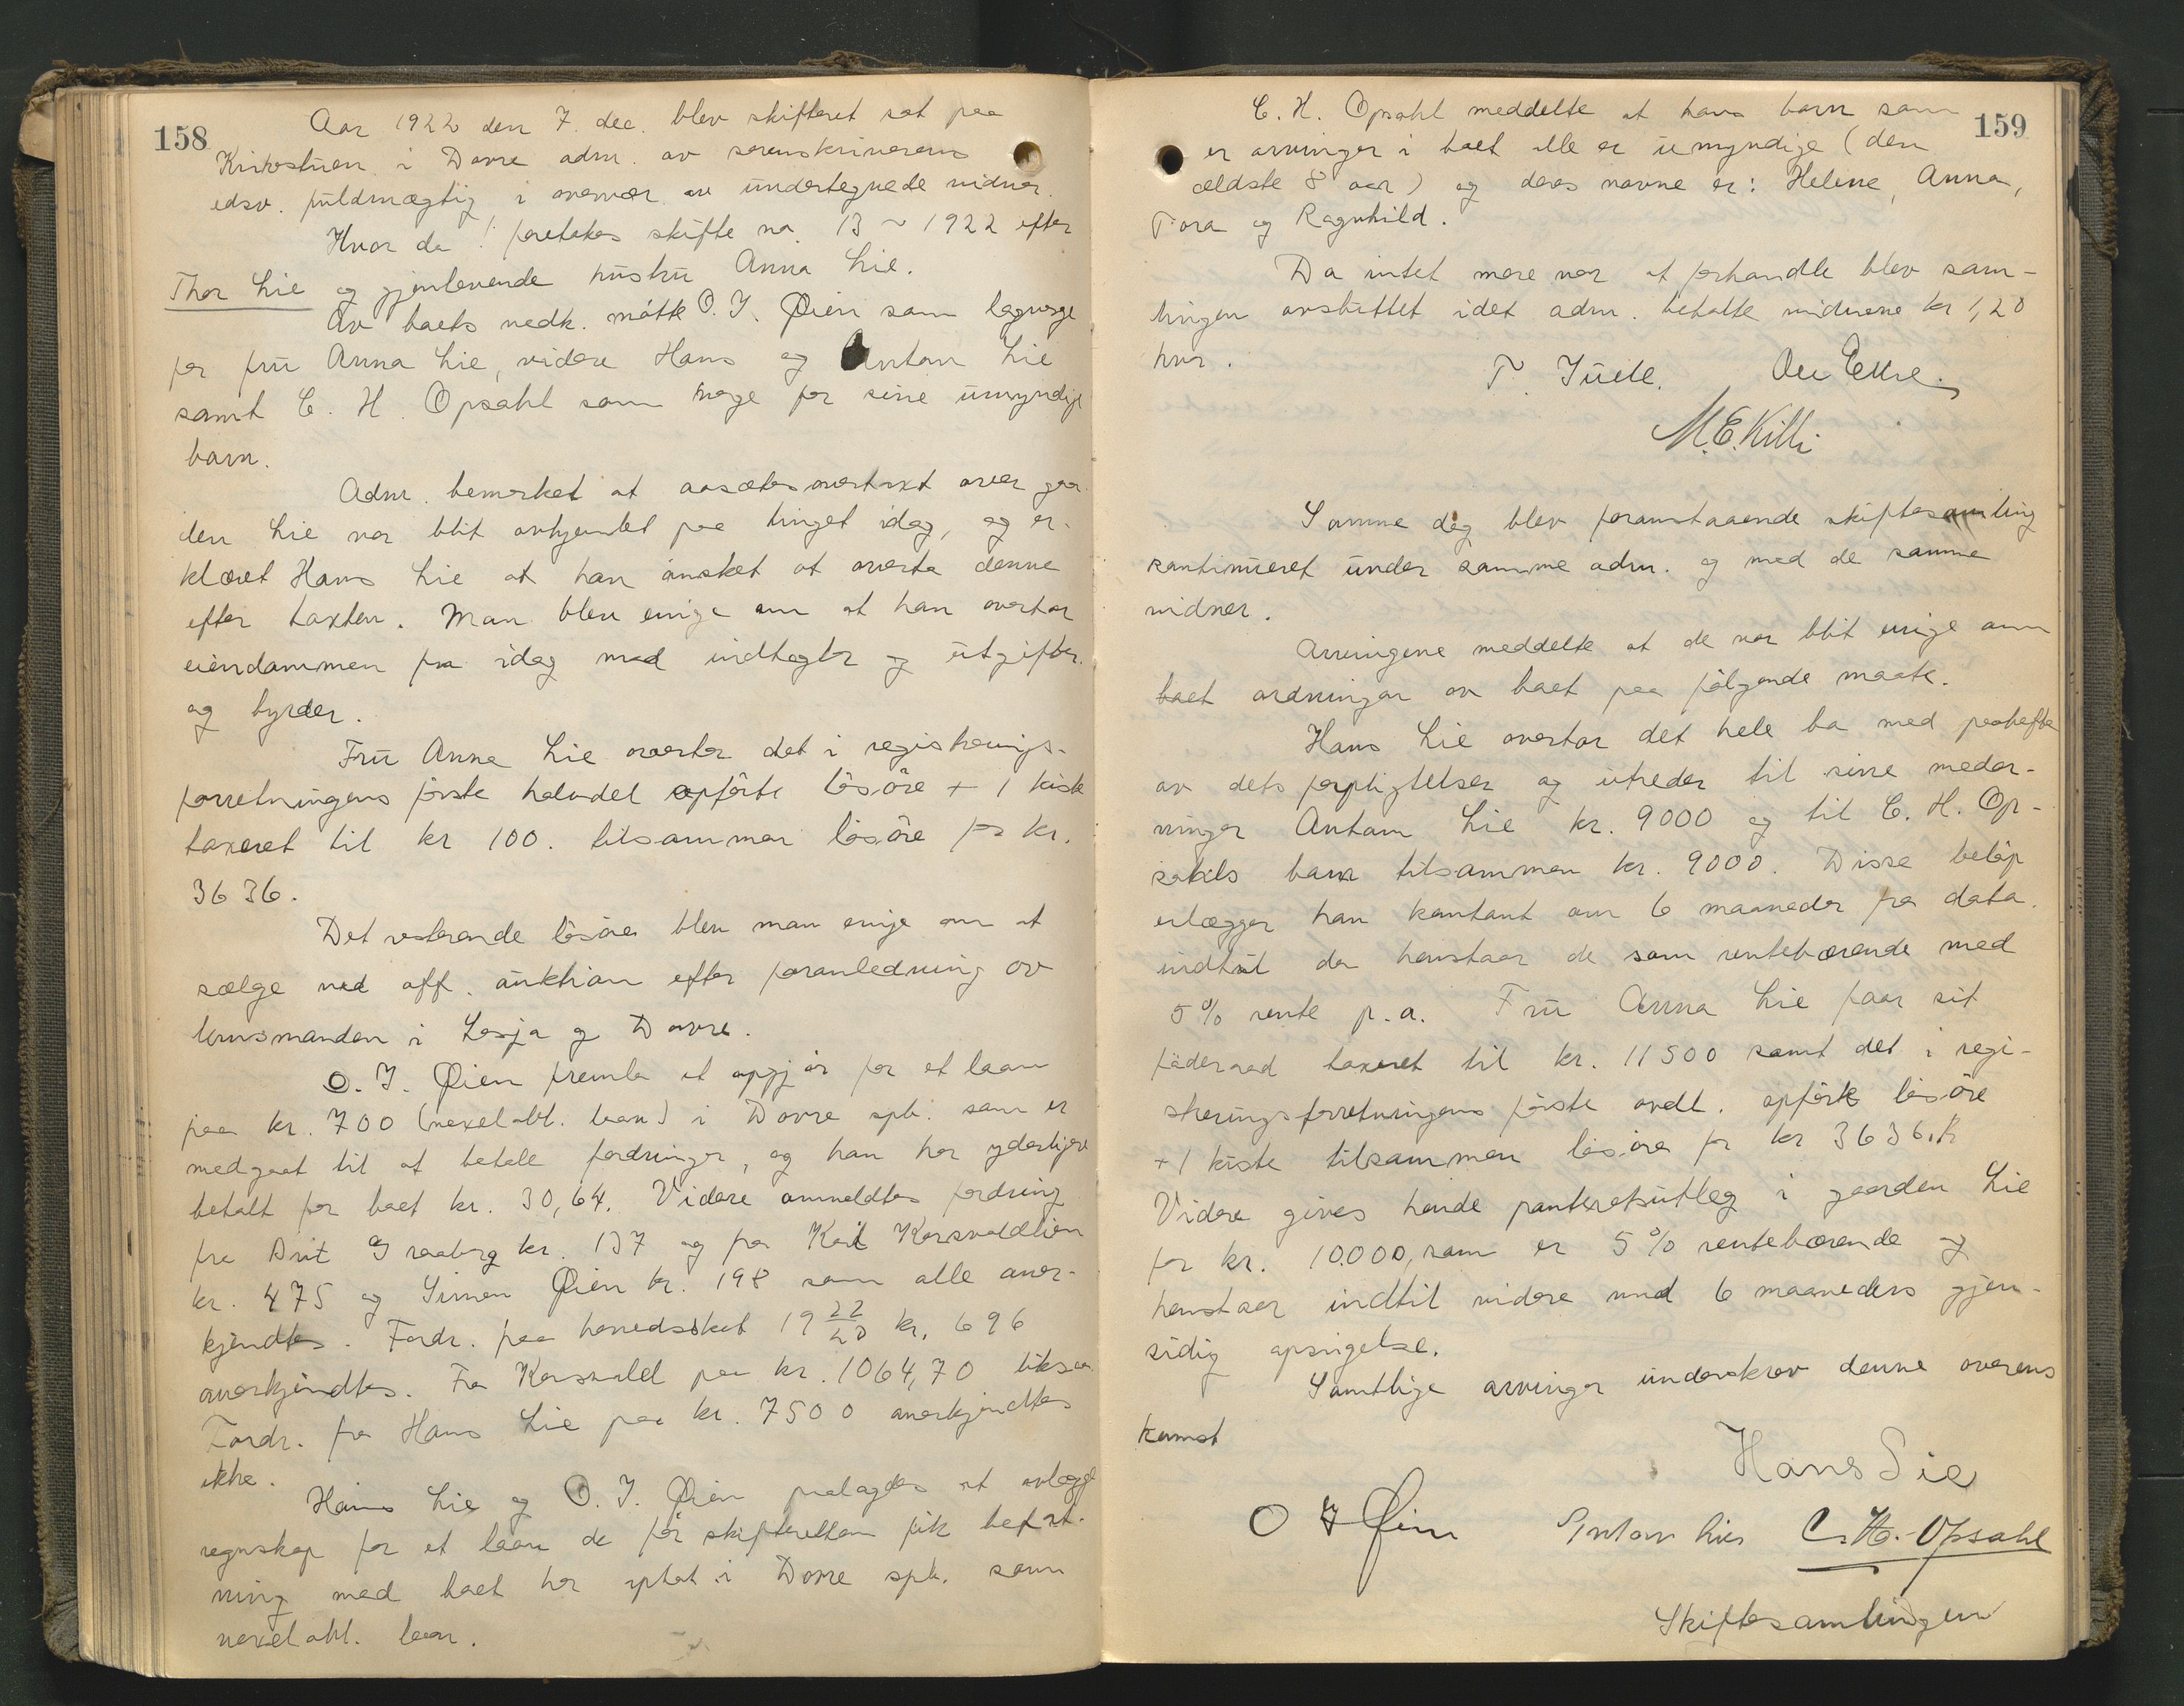 158
Aar 1922 den 7. dec. blev skifteret sat paa
Kirkestuen i Dovre adm. av sorenskriverens
edsv. fuldmægtig i overvær av undertegnede vidner.
Hvor da: foretokes skifte no. 13 ~ 1922 efter
Thor Lie og gjenlevende hustru Anna Lie.
Av boets vedk. møtte O. J. Øien som lagverge
for fru Anna Lie, videre Hans og Anton Lie
samt C. H. Opsahl som verge for sine umyndige
barn.
Adm. bemerket at aasætesovertaxt over gaar-
den Lie var blit avhjemlet paa tinget idag, og er-
klæret Hans Lie at han ønsket at overta denne
efter taxten. Man blev enige om at han overtar
eiendommen fra idag med indtægter og utgifter.
og byrder.
Fru Anna Lie overtar det i registrerings-
forretningens første halvdel opførte løsøre + 1 kiste
taxeret til kr 100. tilsammen løsøre for kr.
3636.
Det resterende løsøre blev man enige om at
sælge ved off. auktion efter foranledning av
lensmanden i Lesja og Dovre.
O. J. Øien fremla et opgjør for et laan
paa kr. 700 (vexelobl. laan) i Dovre spb. som er
medgaat til at betale fordringer, og han har yderligere
betalt for boet kr. 30,64. Videre anmeldtes fordring
fra Brit Graaberg kr. 137 og fra Kari Korsvoldlien
kr. 475 og Simen Øien kr. 198 som alle aner-
kjendtes. Fordr. paa herredsskat 19 22/20 kr. 696
anerkjendtes. Fra Korsvold paa kr. 1064,70 likesaa
Fordr. fra Hans Lie paa kr. 7500 anerkjendtes
ikke.
Hans Lie og O. J. Øien paalagdes at avlægge
regnskap for et laan de før skifteretten fik befat-
ning med boet har optat i Dovre spb. som
vexelobl. laan.
159
C. H. Opsahl meddelte at hans barn som
er arvinger i boet alle er umyndige (den
ældste 8 aar) og deres navne er: Helene, Anna,
Tora og Ragnhild.
Da intet mere var at forhandle blev sam-
lingen avsluttet idet adm. betalte vidnene kr 1,20
hver.
T. Juell.
M.E. Killi
Samme dag blev foranstaaende skiftesamling
kontinueret under samme adm. og med de samme
vidner.
Arvingene meddelte at de var blit enige om
boet ordningen av boet paa følgende maate.
Hans Lie overtar det hele bo med paahefte
av dets forpligtelser og utreder til sine medar-
vinger Antom Lie kr. 9000 og til C. H. Op-
sahls barn tilsammen kr. 9000. Disse beløp
erlægger han kontant om 6 maaneder fra dato.
indtil da henstaar de som rentebærende med
5% rente p.a. Fru Anna Lie faar sit
føderaad taxeret til kr. 11500 samt det i regi-
streringsforretningens første avdl. opførte løsøre
+ 1 kiste tilsammen løsøre for kr 3636.
Videre gives hende panteretsutlæg i gaarden Lie
for kr. 10.000, som er 5% rentebærende og
henstaar indtil videre med 6 maaneders gjen-
sidig opsigelse.
Samtlige arvinger underskrev denne overens
komst
Hans Lie
O J Øien Anton Lie C. H. Opsahl
Skiftesamlingen